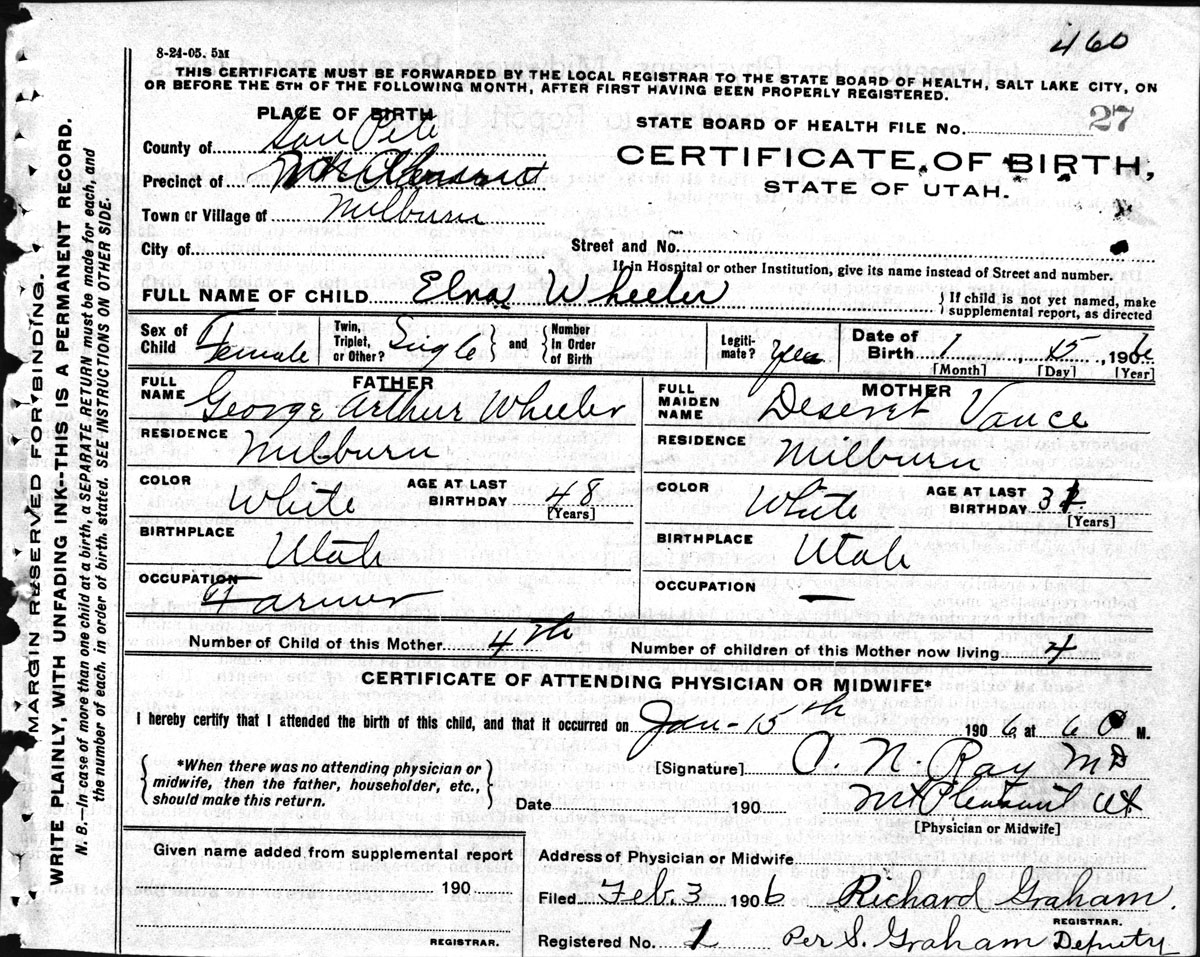 8-24-05. 5M
460
THIS CERTIFICATE MUST BE FORWARDED BY THE LOCAL REGISTRAR TO THE STATE BOARD OF HEALTH, SALT LAKE CITY, ON
OR BEFORE THE 5TH OF THE FOLLOWING MONTH, AFTER FIRST HAVING BEEN PROPERLY REGISTERED.
MARGIN RESERVED FOR BINDING.
WRITE PLAINLY, WITH UNFADING INK--THIS IS A PERMANENT RECORD.
N. B.—In case of more than one child at a birth, a SEPARATE RETURN must be made for each, and
the number of each, in order of birth, stated. SEE INSTRUCTIONS ON OTHER SIDE.
PLACE OF BIRTH
County of San Pete
Precinct of
Town or Village of Milburn
City of
STATE BOARD OF HEALTH FILE No. 27
CERTIFICATE OF BIRTH,
STATE OF UTAH.
Street and No.
If in Hospital or other Institution, give its name instead of Street and number.
FULL NAME OF CHILD Elva Wheeler } If child is not yet named, make
supplemental report, as directed
Sex of Child Female
Twin, Triplet, or Other? Single } and { Number In Order of Birth
Legiti- mate? Yes
Date of Birth 1 15, 1906
[Month] [Day] [Year]
FATHER
FULL NAME George Arthur Wheeler
RESIDENCE Milburn
COLOR White AGE AT LAST BIRTHDAY 48
[Years]
BIRTHPLACE Utah
OCCUPATION Farmer
MOTHER
FULL MAIDEN NAME Deseret Vance
RESIDENCE Milburn
COLOR White AGE AT LAST BIRTHDAY
[Years]
BIRTHPLACE Utah
OCCUPATION —
Number of Child of this Mother 4th Number of children of this Mother now living 4
CERTIFICATE OF ATTENDING PHYSICIAN OR MIDWIFE*
I hereby certify that I attended the birth of this child, and that it occurred on Jan-15th 1906, at 6 M.
{ *When there was no attending physician or
midwife, then the father, householder, etc.,
should make this return. }
[Signature] O. N. Ray MD
Date 190 Mt Pleasant Ut
[Physician or Midwife]
Given name added from supplemental report
190
REGISTRAR.
Address of Physician or Midwife
Filed Feb. 3 1906 Richard Graham.
REGISTRAR.
Registered No. 1 Per S. Graham Deputy